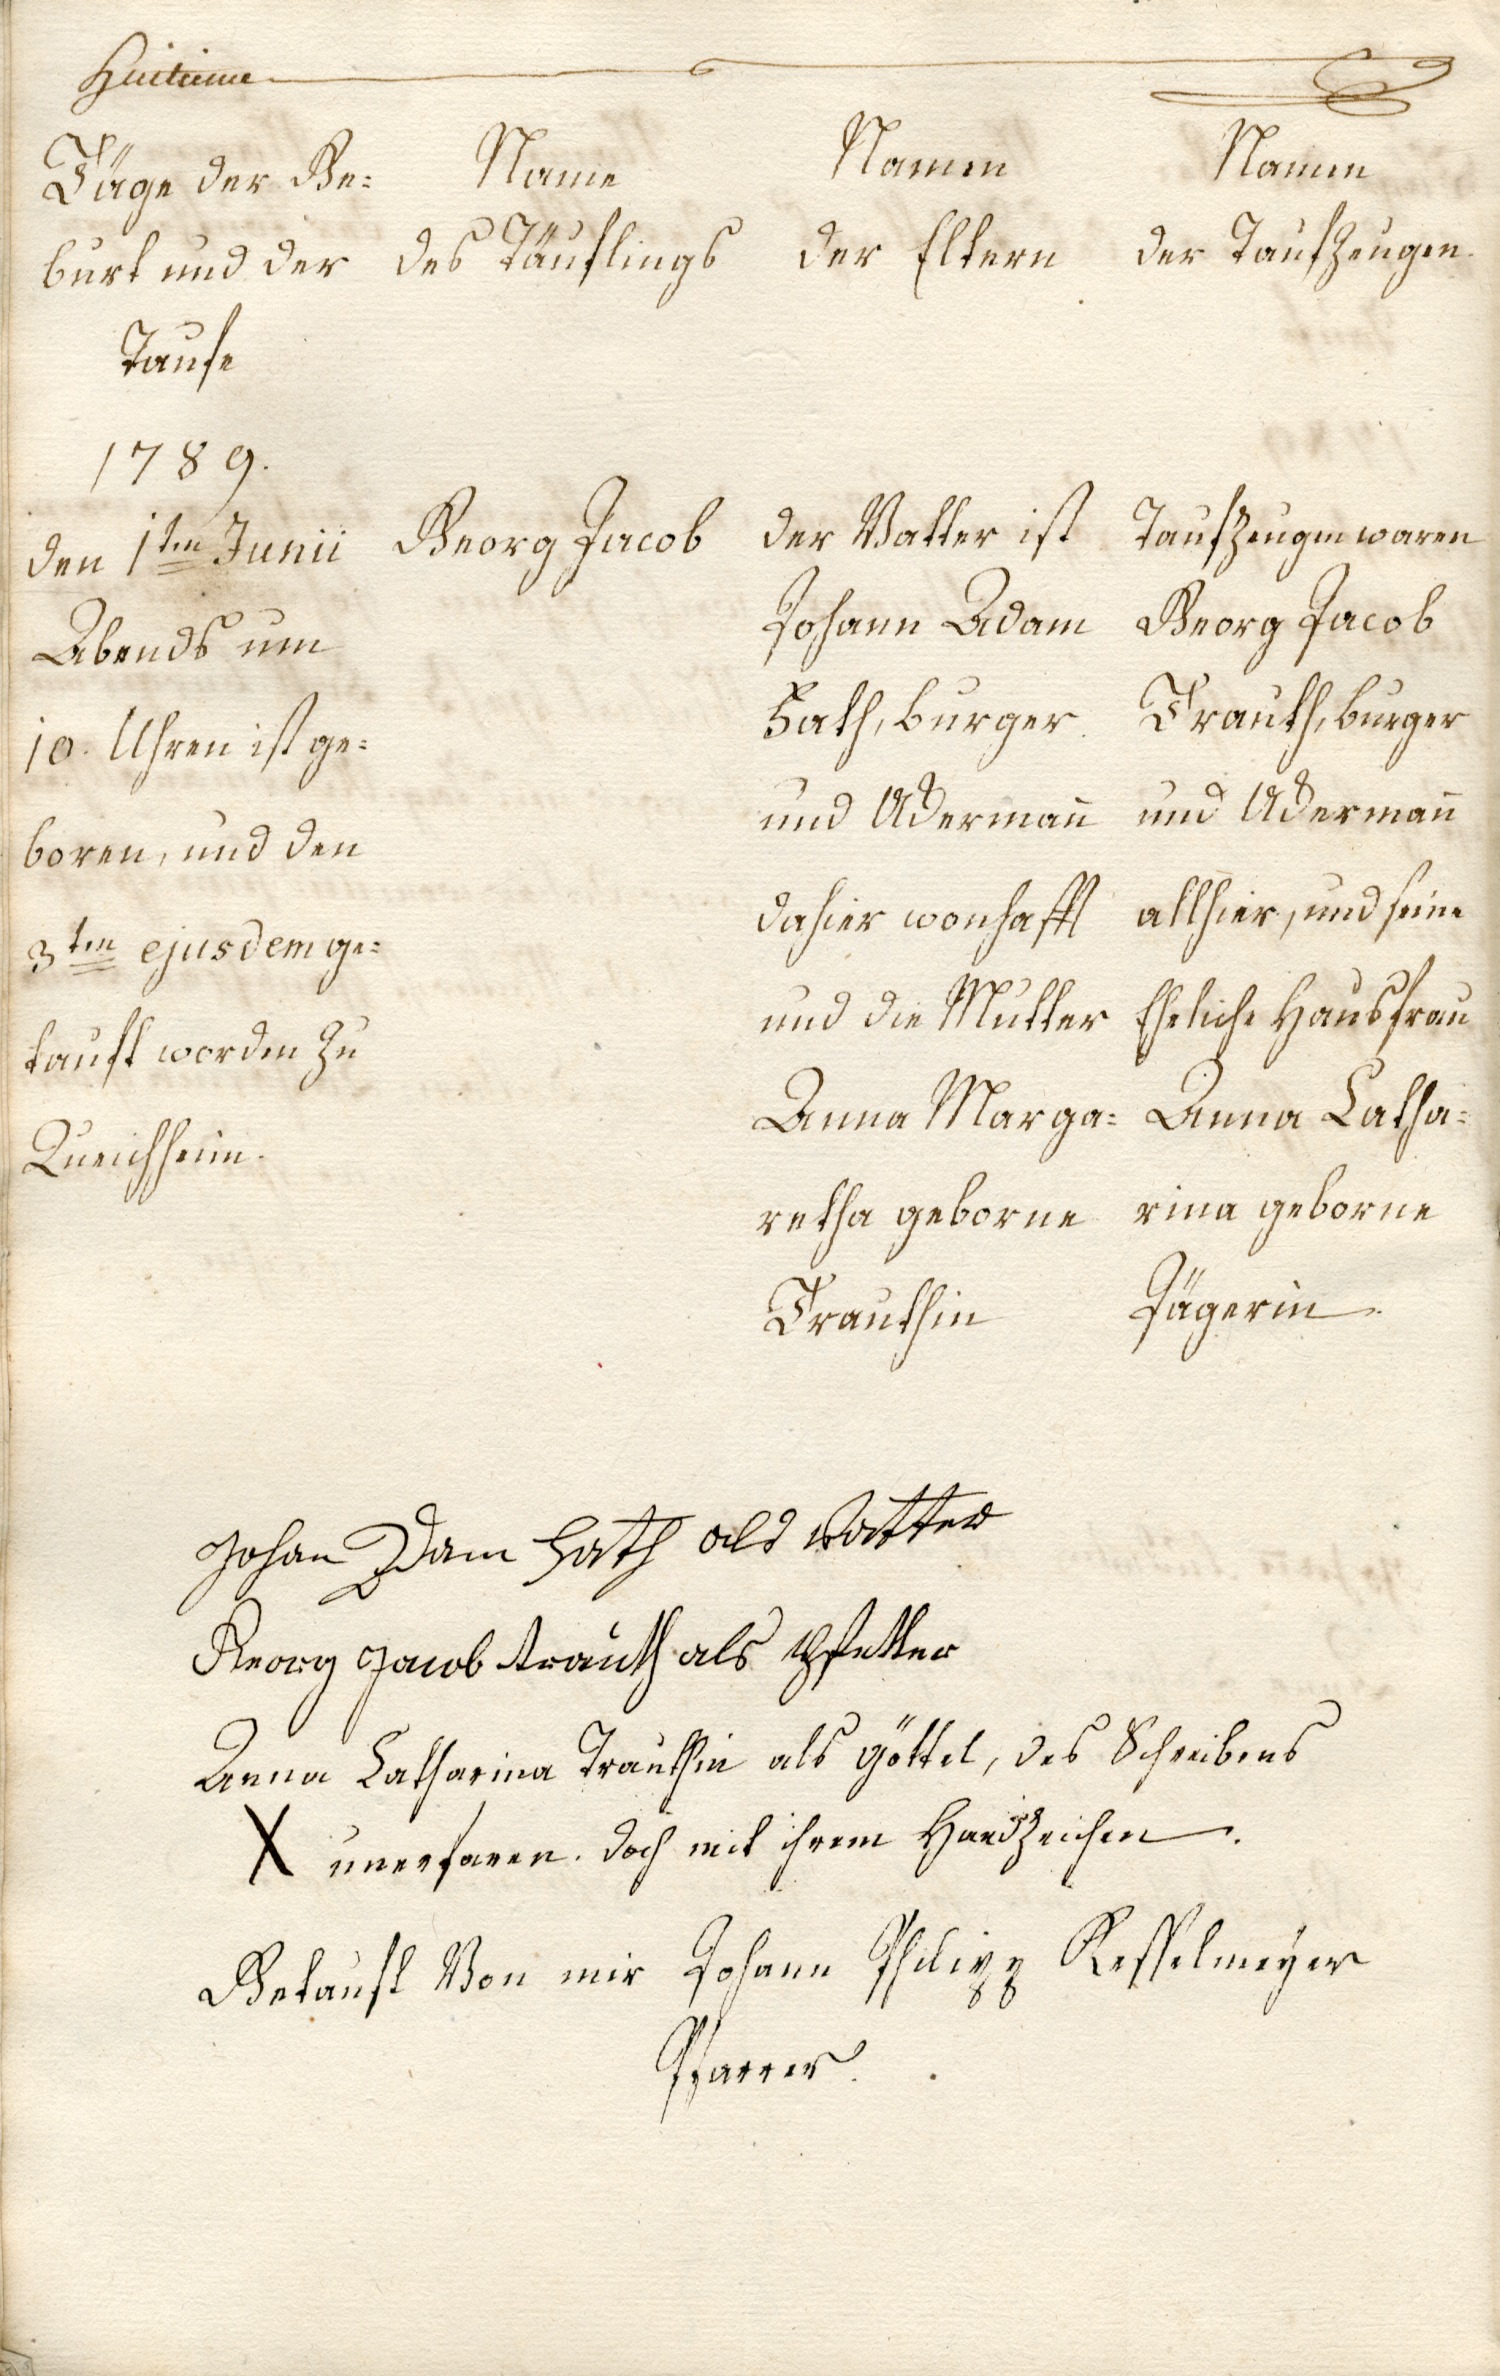 Huitieme
Täge der Ge=
burt und der
Taufe
Name
des Täuflings
Namen
der Eltern
Namen
der Taufzeugen.
1789.
den 1ten Junii
Abends um
10. Uhren ist ge=
boren, und den
3ten ejusdem ge=
tauft worden zu
Queichheim.
Georg Jacob
der Vatter ist
Johann Adam
Hath, burger
und Ackermañ
dahier wonhafft
und die Mutter
Anna Marga=
retha geborne
Trauthin
Taufzeugen waren
Georg Jacob
Trauth, burger
und Ackermañ
allhier, und seine
Eheliche Hausfrau
Anna Catha=
rina geborne
Jägerin.
Johan Adam Hath als Vatter
Georg Jacob Trauth als Pfetter
Anna Catharina Trauthin als Göttel, des Schreibens
X unerfaren. doch mit ihrem Handzeichen.
Getauft Von mir Johann Philipp Kesselmeÿer
Pfarrer.